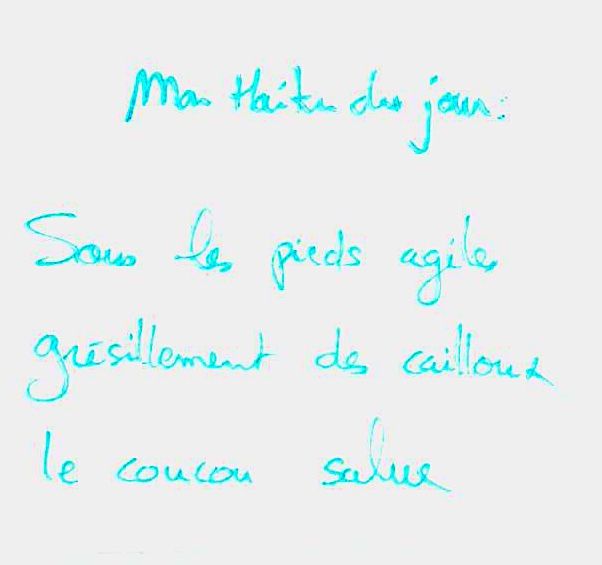 Mon Haïku du jour:
Sous les pieds agiles
grésillement des cailloux
le coucou salue